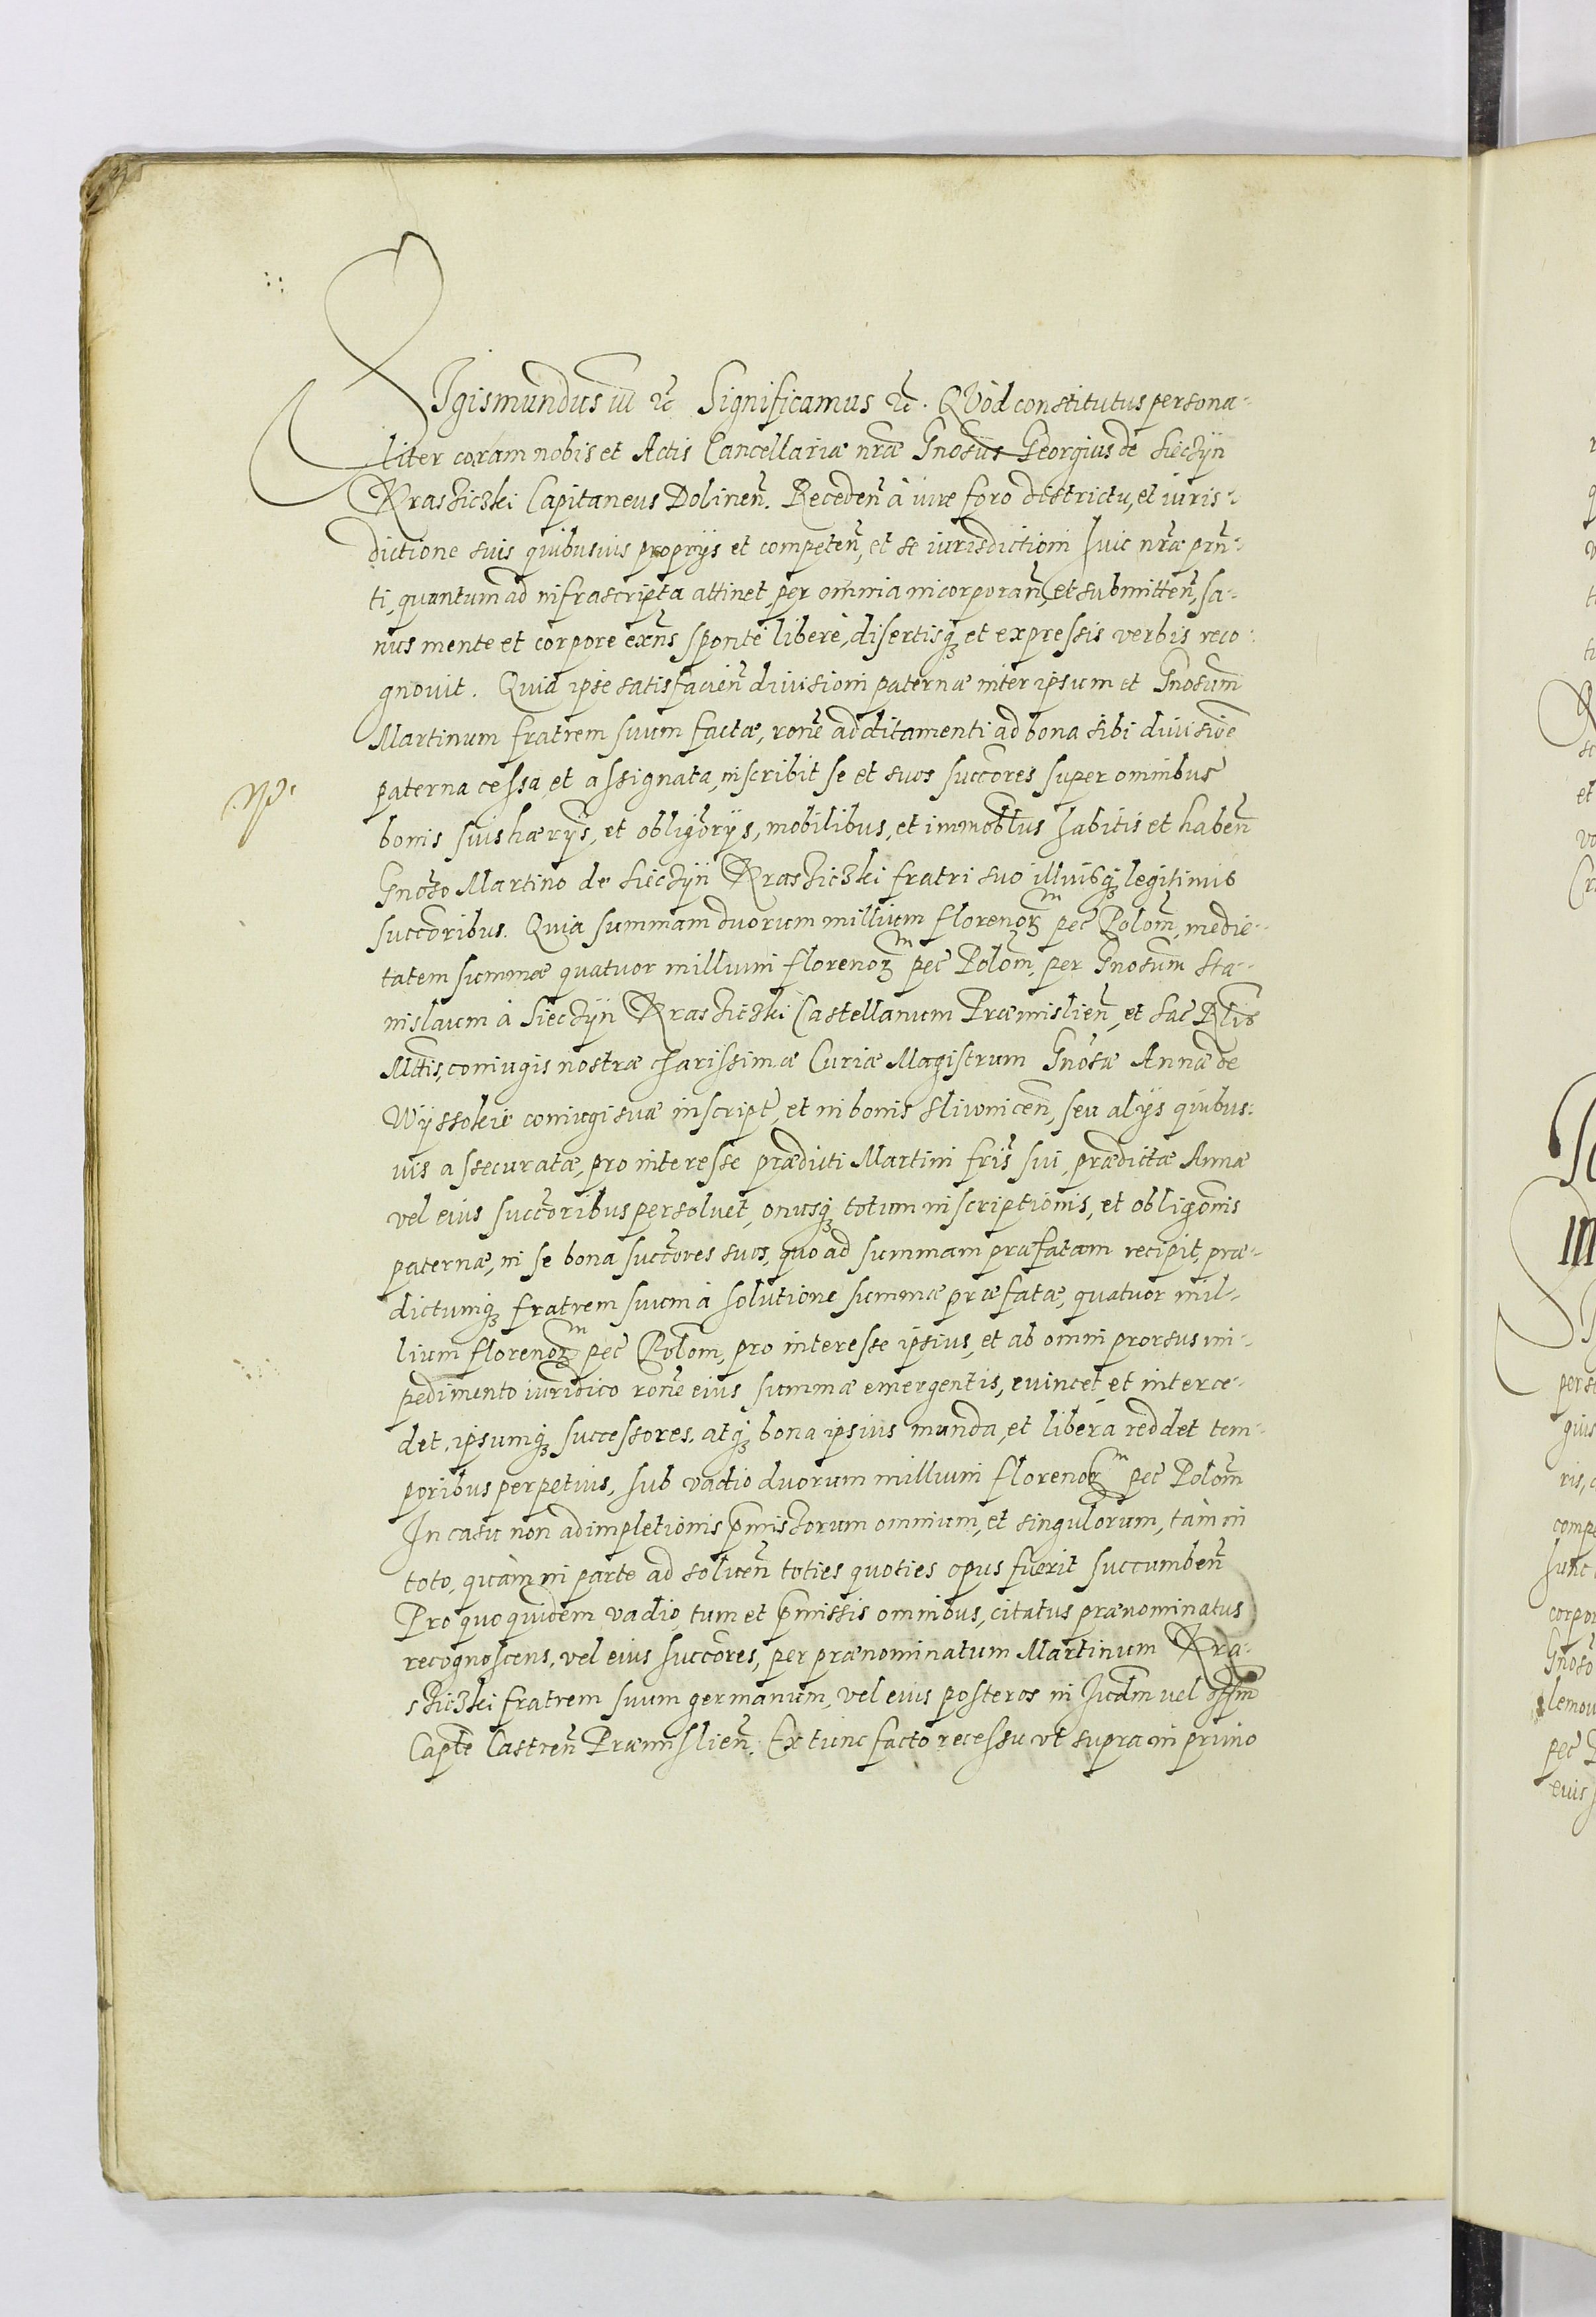 SIgismundus III etc. Significamus etc. QVòd constitutus persona-
liter coram nobis et Actis Cancellariæ nr̃æ Gnosus Georgius de Sieczÿn
Krasziczki Capitaneus Dolineñ. Recedeñ à iure foro districtu, et iuris-
dictione suis quibusuis proprijs et competeñ, et se iurisdictioni huic nr̃æ prñ-
ti, quantum ad infrascripta attinet, per omnia incorporañ, et submitteñ, sa-
nus mente et corpore exñs sponte liberè, disertisq; et expressis verbis reco-
gnouit. Quia ipse satisfacieñ diuisioni paternæ inter ipsum et Gnosum
Martinum fratrem suum factæ, rõne additamenti ad bona sibi diuisiõe
paterna cessa, et assignata, inscribit se et suos succõres super omnibus
bonis suis hærijs, et obligõrijs, mobilibus, et immobl̃ius habitis et habeñ
Gnoso Martino de Sieczÿn Krasziczki fratri suo illiusq; legitimis
succõribus. Quia summam duorum millium florenoꝝ m pec̃ Poloñ, medie-
tatem summæ quatuor millium florenoꝝ m pec̃ Poloñ, per Gnosum Sta-
nislaum à Sieczÿn Krasziczki Castellanum Præmislieñ, et Sac̃ Rl̃is
Mttis, coniugis nostræ charissimæ Curiæ Magistrum Gnosæ Annæ de
Wÿssokie coniugi suæ inscript̃, et in bonis Sliwniceñ, seu alijs quibus-
uis assecuratæ, pro interesse prædicti Martini fr̃is sui, prædictæ Annæ
vel eius succõribus persoluet, onusq; totum inscriptionis, et obligõnis
paternæ, in se bona succõres suos, quo ad summam præfatam recipit, præ-
dictumq; fratrem suum à solutione summæ præfatæ, quatuor mil-
lium florenoꝝ m pec̃ Poloñ, pro interesse ipsius, et ab omni prorsus im-
pedimento iuridico rõne eius summæ emergentis, euincet et interce-
det, ipsumq; successores, atq; bona ipsius munda, et libera reddet tem-
poribus perpetuis, sub vadio duorum millium florenoꝝ m pec̃ Poloñ
In casu non adimpletionis p̃missorum omnium, et singulorum, tàm in
toto, quàm in parte ad solueñ toties quoties opus fuerit succumbeñ
Pro quo quidem vadio, tum et p̃missis omnibus, citatus prænominatus
recognoscens, vel eius succõres, per prænominatum Martinum Kra-
sziczki fratrem suum germanum, vel eius posteros in Iudm̃ vel offm̃
Capt̃e Castreñ Præmislieñ. Ex tunc facto recessu vt supra in primo